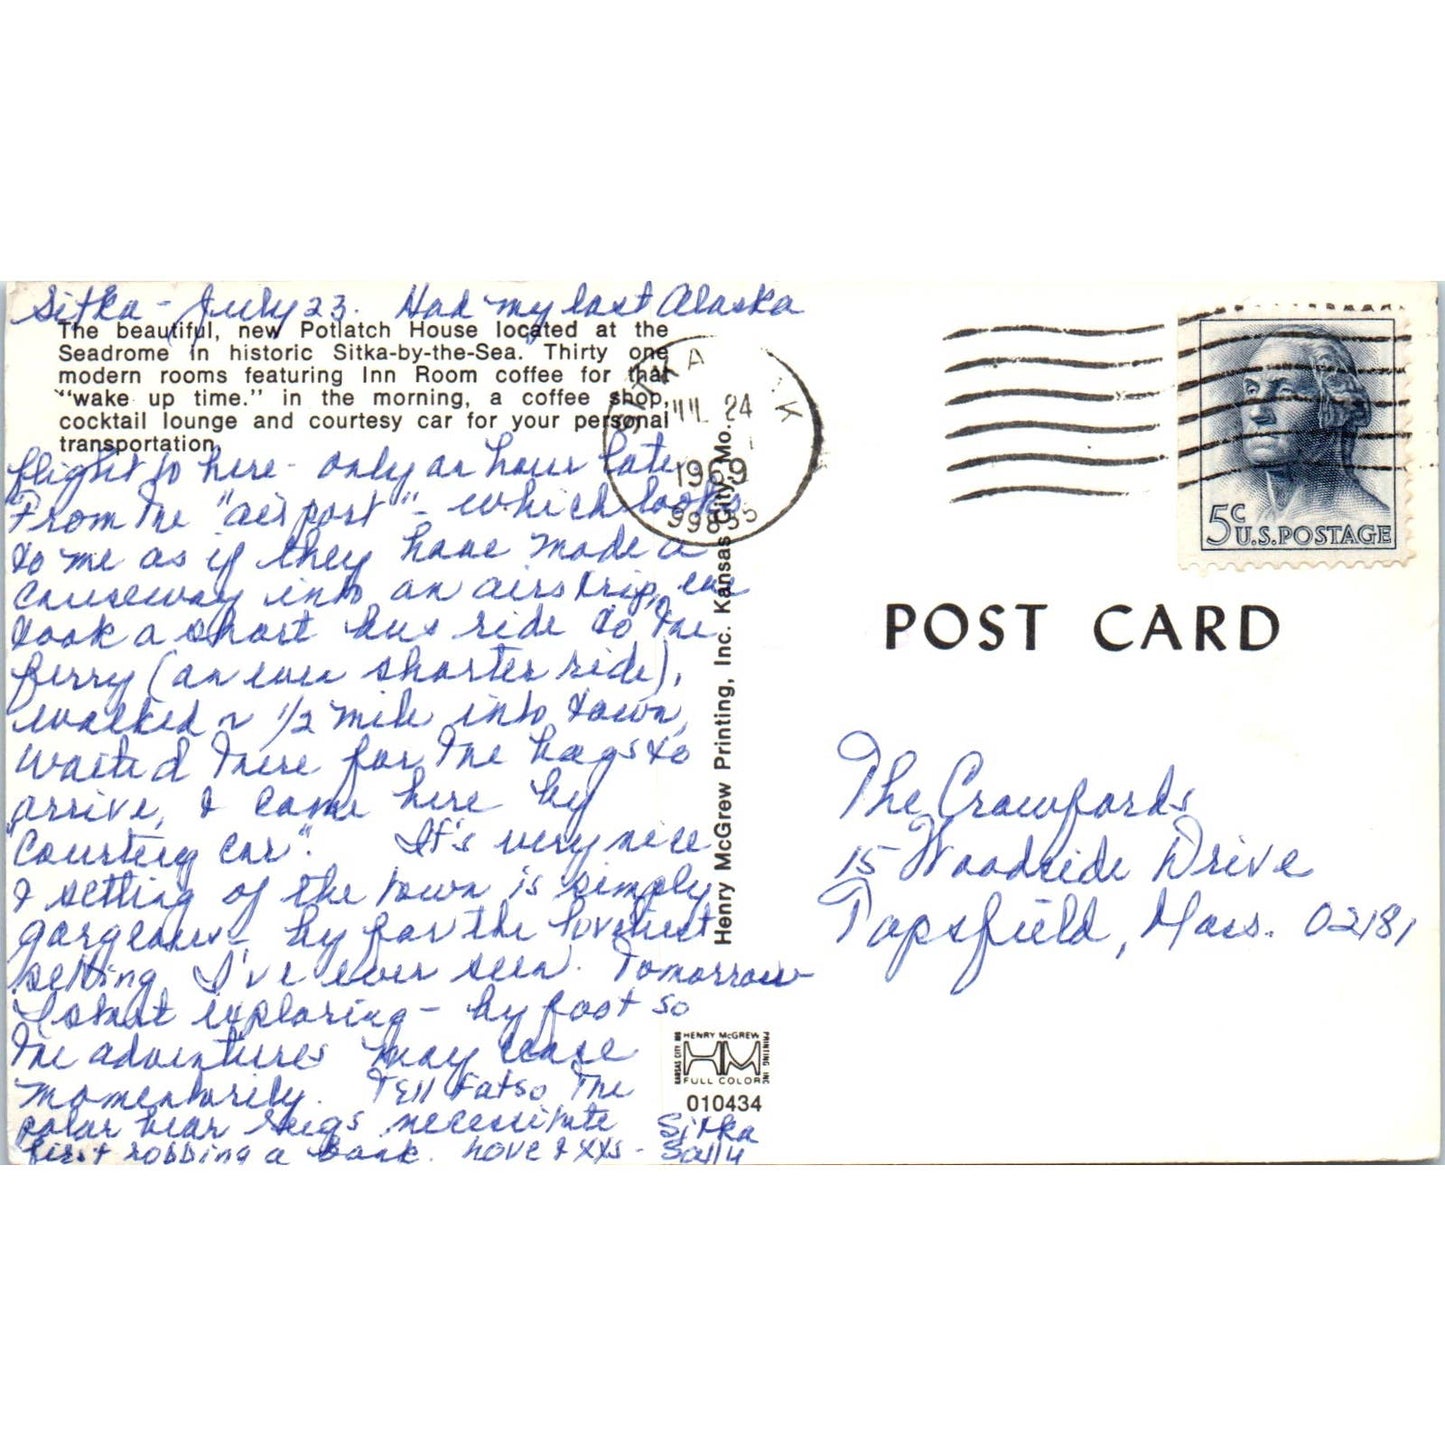 Sitka - July 23. Had my last Alaska
The beautiful, new Potlatch House located at the
Seadrome in historic Sitka-by-the-Sea. Thirty one
modern rooms featuring Inn Room coffee for that
"wake up time." in the morning, a coffee shop,
cocktail lounge and courtesy car for your personal
transportation.
flight to here - only an hour late.
From the "airport" - which looks
to me as if they have made a
causeway into an airstrip, we
took a short bus ride to the
ferry (an even shorter ride),
walked ~ 1/2 mile into town,
waited there for the bags to
arrive, & came here by
"courtesy car". It's very nice
& setting of the town is simply
gorgeous - by far the loveliest
setting I've ever seen. Tomorrow
I start exploring - by foot so
the adventures may cease
momentarily. Tell Fatso the
polar bear rugs necessitate
first robbing a bank. Love & XXs -
Sitka
Sally
SITKA
JUL 24
1969
99835
Henry McGrew Printing, Inc. Kansas City, Mo.
HENRY McGREW
PRINTING INC
KANSAS CITY MO
HM
FULL COLOR
010434
5c
U.S. POSTAGE
POST CARD
The Crawfords
15 Woodside Drive
Topsfield, Mass. 02181